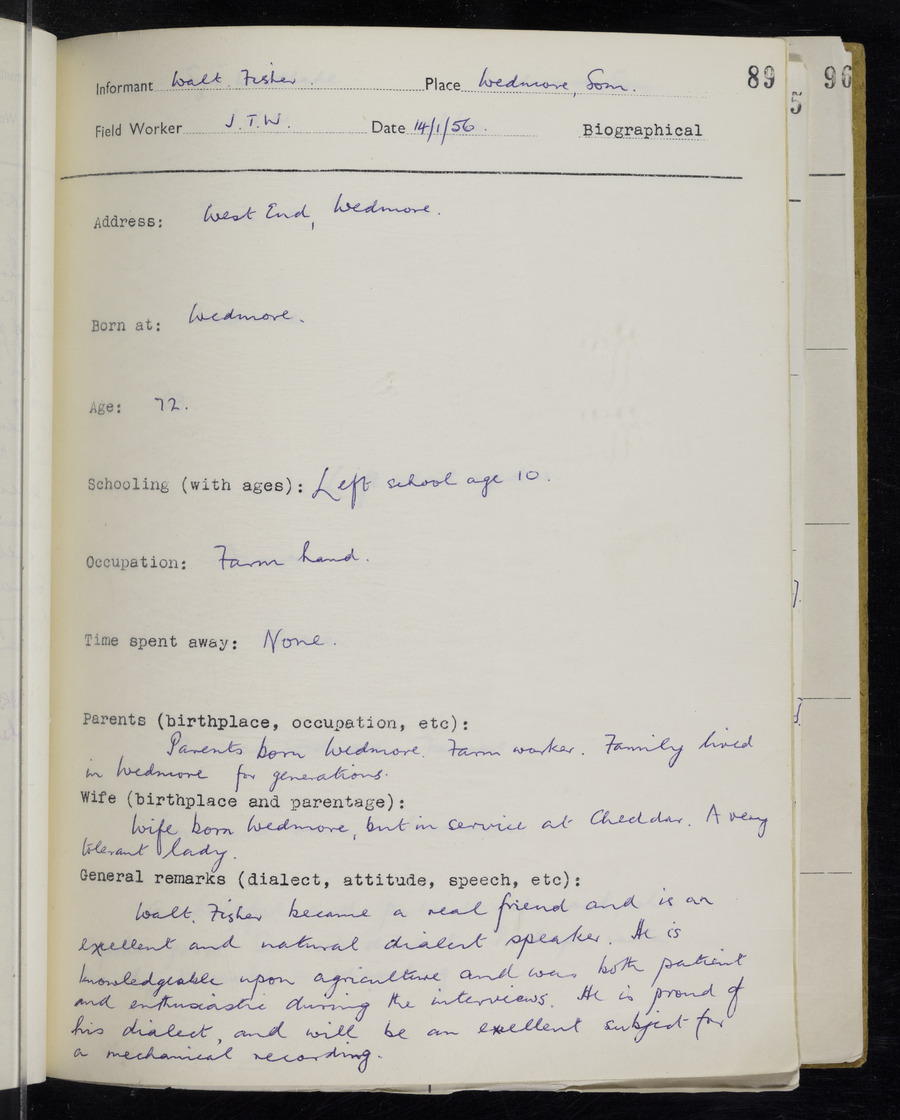 Informant Walt. Fisher. Place Wedmore, Som. 89
Field Worker J.T.W. Date 14/1/56. Biographical
Address: West End, Wedmore.
Born at: Wedmore.
Age: 72.
Schooling (with ages): Left school age 10.
Occupation: Farm hand.
Time spent away: None.
Parents (birthplace, occupation, etc):
Parents born Wedmore. Farm worker. Family lived
in Wedmore for generations.
Wife (birthplace and parentage):
Wife born Wedmore, but in service at Cheddar. A very
tolerant lady.
General remarks (dialect, attitude, speech, etc):
Walt. Fisher became a real friend and is an
excellent and natural dialect speaker. He is
knowledgeable upon agriculture and was both patient
and enthusiastic during the interviews. He is proud of
his dialect, and will be an excellent subject for
a mechanical recording.
5
96